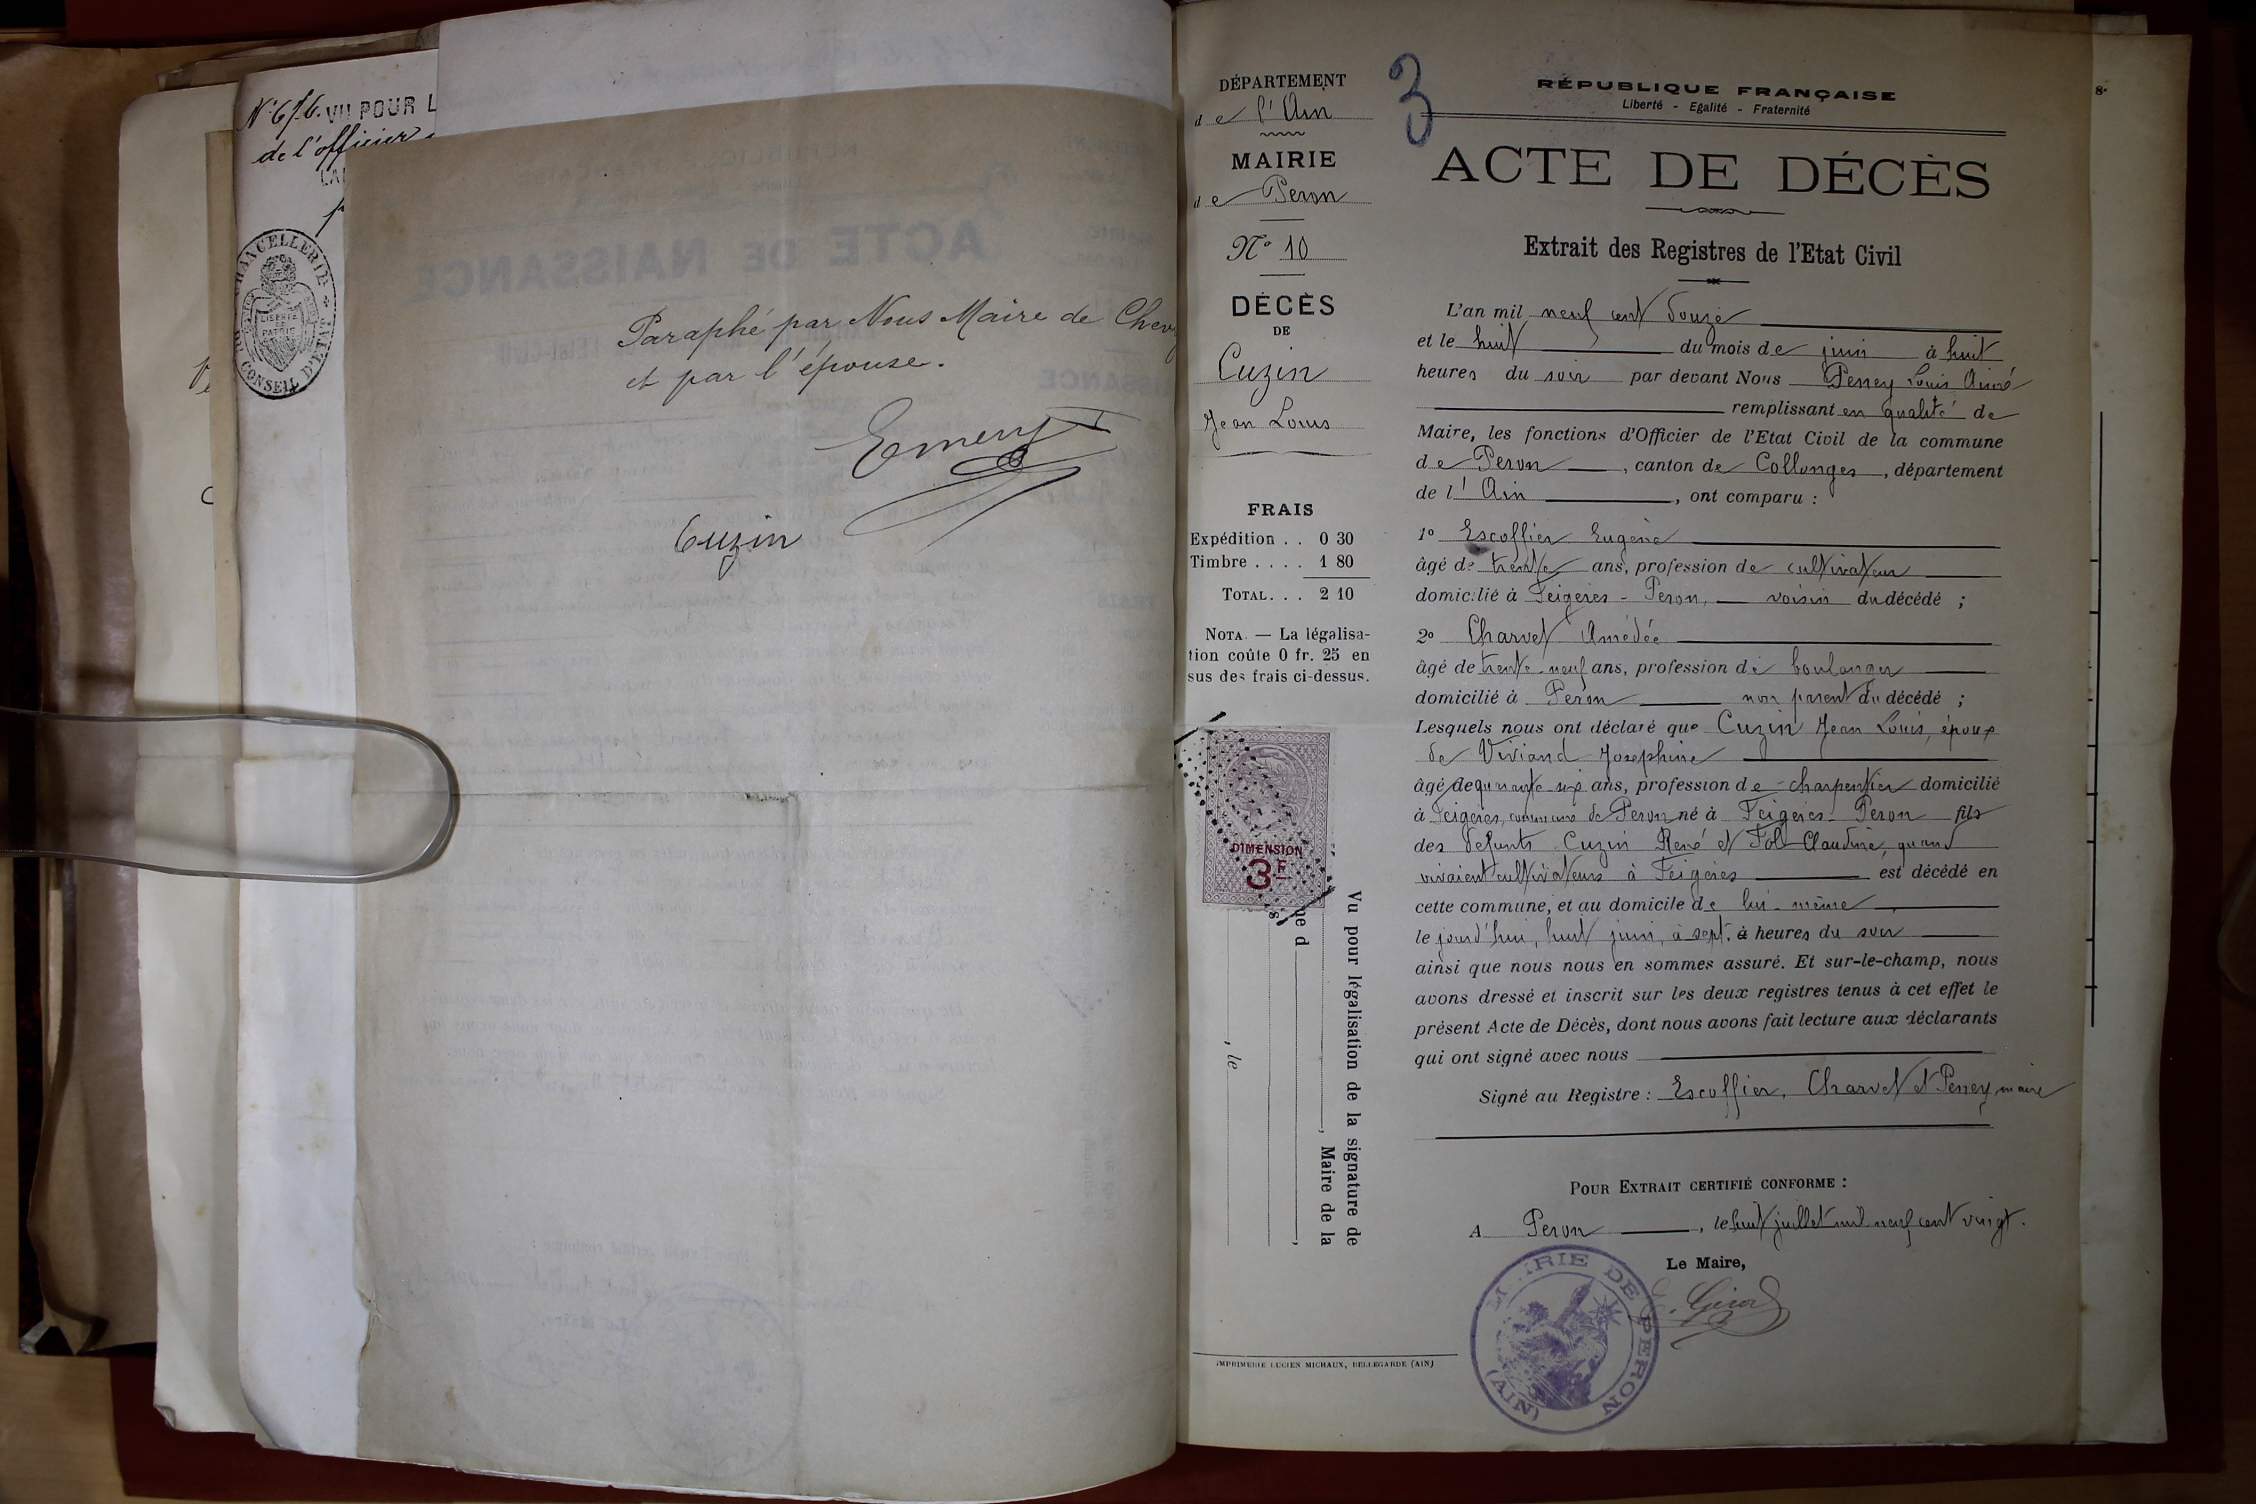 N° 676. VU POUR L
de l'officier
CHANCELLERIE
LIBERTÉ
ET
PATRIE
DU CONSEIL D'ETAT
Paraphé par Nous Maire de Chevry
et par l'épouse.
Emery
Cuzin
DÉPARTEMENT
de l'Ain
MAIRIE
de Peron
N° 10
DÉCÈS
DE
Cuzin
Jean Louis
FRAIS
Expédition . . 0 30
Timbre . . . . 1 80
TOTAL. . . 2 10
NOTA. — La légalisa-
tion coûte 0 fr. 25 en
sus des frais ci-dessus.
DIMENSION
3 F
Vu pour légalisation de la signature de
, Maire de la
ne d
s
, le
IMPRIMERIE LUCIEN MICHAUX, BELLEGARDE (AIN)
3
RÉPUBLIQUE FRANÇAISE
Liberté - Egalité - Fraternité
ACTE DE DÉCÈS
Extrait des Registres de l'Etat Civil
L'an mil neuf cent douze
et le huit du mois de juin à huit
heures du soir par devant Nous Perrey Louis Aimé
remplissant en qualité de
Maire, les fonctions d'Officier de l'Etat Civil de la commune
de Peron, canton de Collonges, département
de l'Ain, ont comparu :
1° Escoffier Eugène
âgé de trente ans, profession de cultivateur
domicilié à Feigères - Peron, voisin du décédé ;
2° Charvet Amédée
âgé de trente-neuf ans, profession de boulanger
domicilié à Peron non parent du décédé ;
Lesquels nous ont déclaré que Cuzin Jean Louis, époux
de Viviand Josephine
âgé de quarante six ans, profession de charpentier domicilié
à Feigères, commune de Peron né à Feigères - Peron fils
des défunts Cuzin René et Fol Claudine, quand
vivaient cultivateurs à Feigères est décédé en
cette commune, et au domicile de lui-même,
le jourd'hui, huit juin, à sept à heures du soir
ainsi que nous nous en sommes assuré. Et sur-le-champ, nous
avons dressé et inscrit sur les deux registres tenus à cet effet le
présent Acte de Décès, dont nous avons fait lecture aux déclarants
qui ont signé avec nous
Signé au Registre : Escoffier, Charvet et Perrey, maire
POUR EXTRAIT CERTIFIÉ CONFORME :
A Peron, le huit juillet mil neuf cent vingt.
Le Maire,
MAIRIE DE PERON
(AIN)
8·